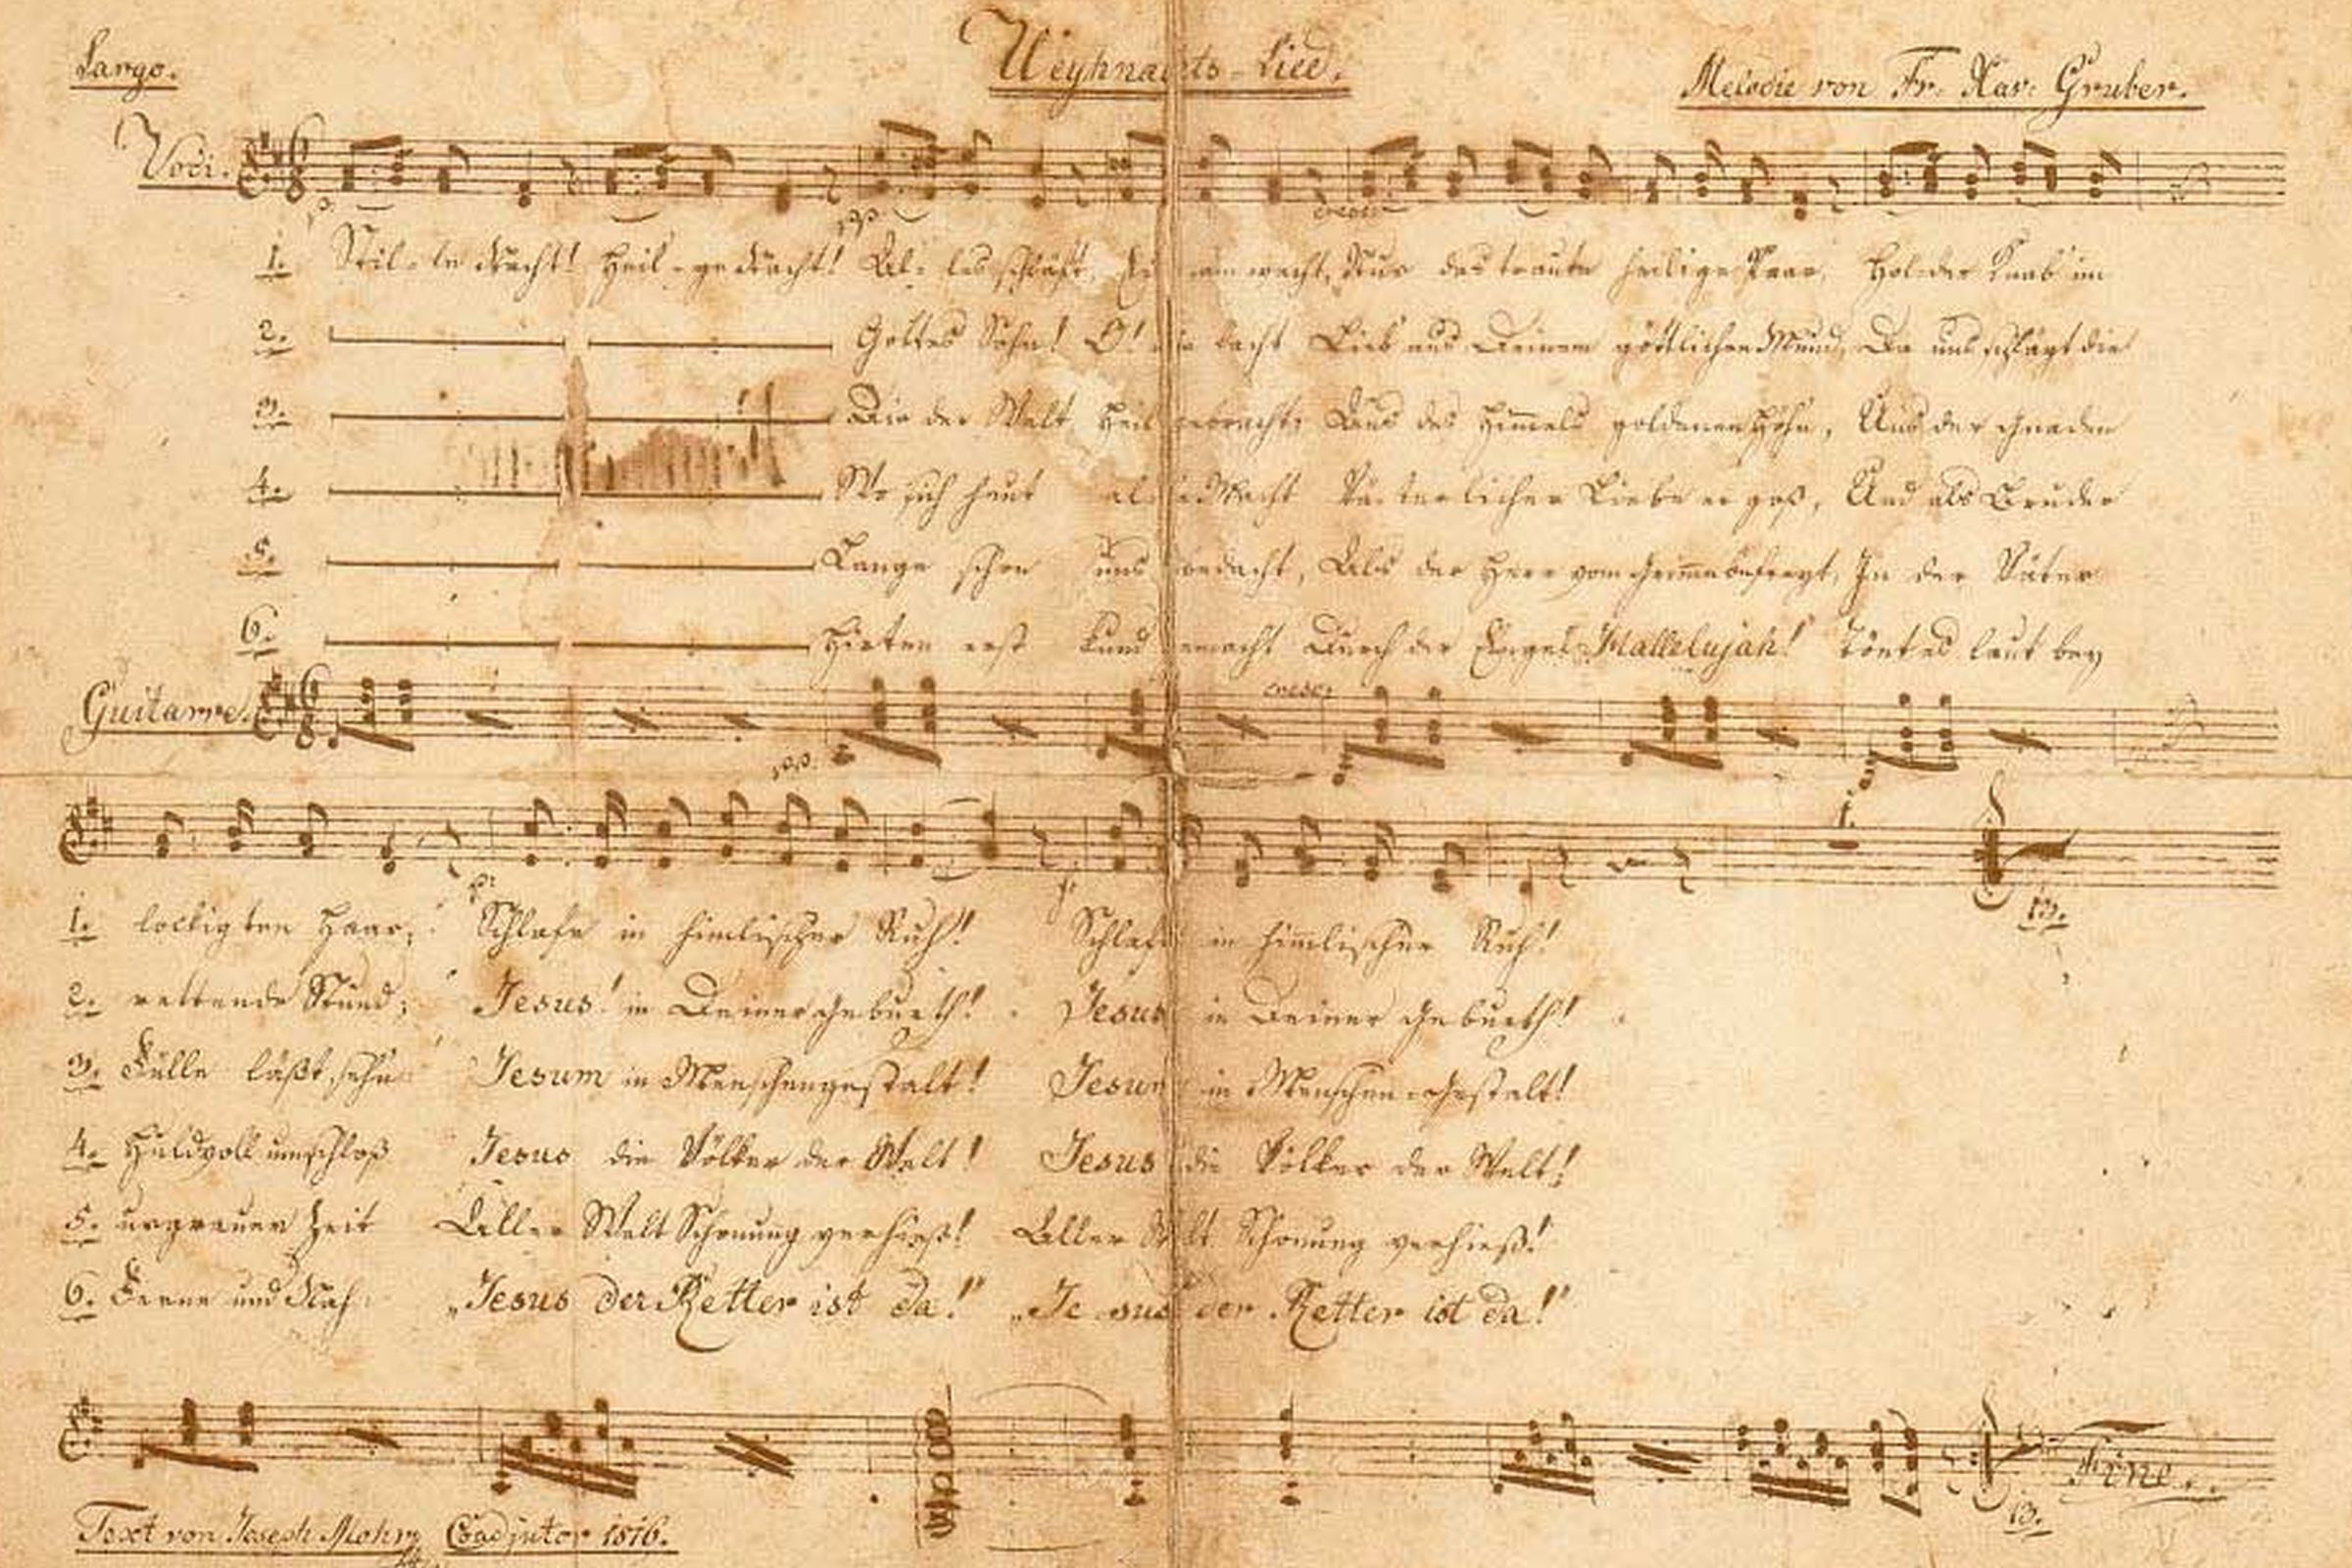 Weyhnachts-Lied.
Largo.
Melodie von Fr: Xav: Gruber.
Voci.
p.
pp
cresc:
1. Stil-le Nacht! Heil-ge Nacht! Al-les schläft. Ein sam wacht, Nur das traute heilige Paar. Hol-der Knab' im
2. Gottes Sohn! O! wie lacht Lieb' aus Deinem göttlichen Mund, Da uns schlägt die
3. Die der Welt Heil gebracht; Aus des Himmels goldenen Höhn, Aus der Gnaden
4. Wo sich heut alle Macht Vä-ter licher Liebe er goß, Und als Bruder
5. Lange schon uns bedacht, Als der Herr vom Grimme befreyt, In der Väter
6. Hirten erst kund gemacht Durch der Engel Hallelujah! Tönt es laut bey
Guitarre.
cresc:
pp.
1. lockigten Haar;. Schlafe in himlischer Ruh! Schlafe in himmlischer Ruh!
2. rettende Stund; Jesus! in Deiner Geburth! Jesus in Deiner Geburth!
3. Fülle läßt sehn Jesum in Menschengestalt! Jesum in Menschen-Gestalt!
4. Huldvoll umschloß Jesus die Völker der Welt! Jesus die Völker der Welt!
5. urgrauer Zeit Aller Welt Schonung verhieß! Aller Welt Schonung verhieß!
6. Ferne und Nah „Jesus der Retter ist da!" „Je sus der Retter ist da!"
Fine.
Text von Joseph Mohr Coadjutor 1816.